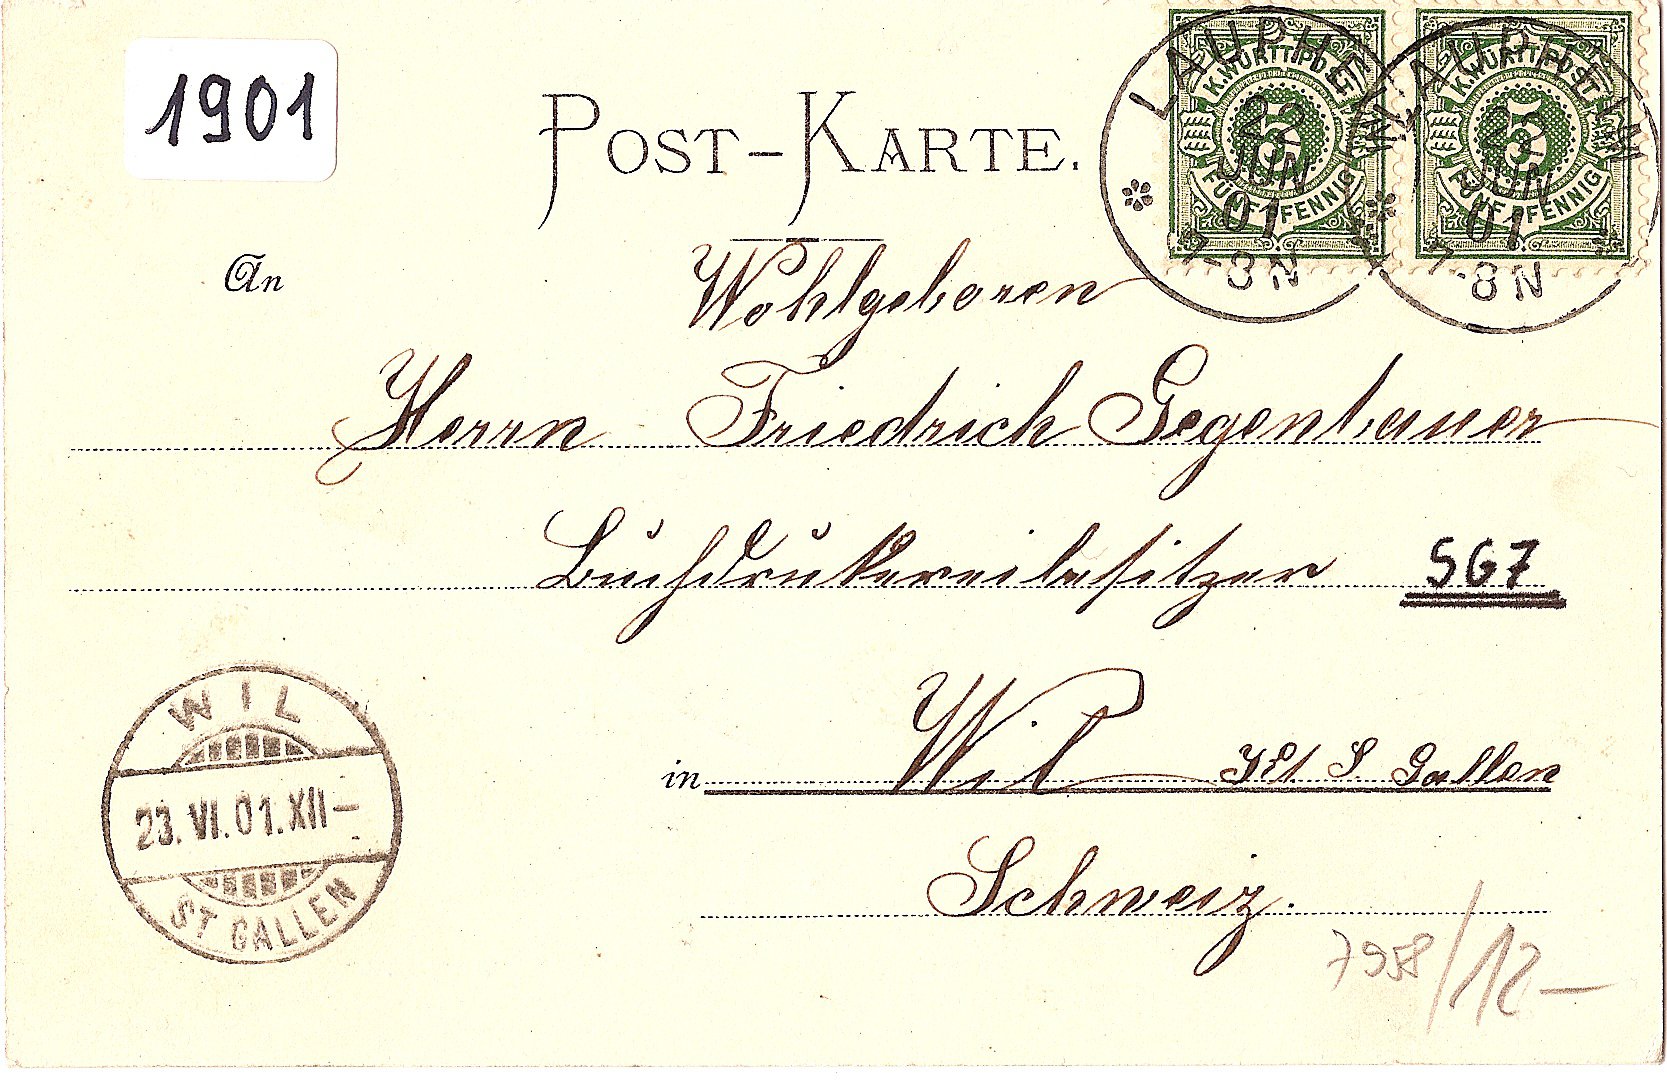 1901
POST-KARTE.
K. WÜRTT. POST
5
FÜNF PFENNIG
K. WÜRTT. POST
5
FÜNF PFENNIG
LAUPHEIM
22
JUN
01
7-8N
LAUPHEIM
JUN
01
7-8N
An
Wohlgeboren
Herrn Friedrich Gegenbauer
Buchdrukereibesitzer
SG7
in Wil Kt. S. Gallen
Schweiz.
WIL
23. VI. 01. XII—
ST GALLEN
7958/12—